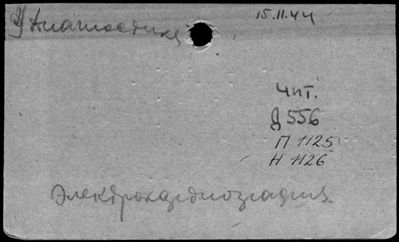 Диагностика
15.11.44
Чит.
Д 556
П 1125
Н 1126
Электрокардиография